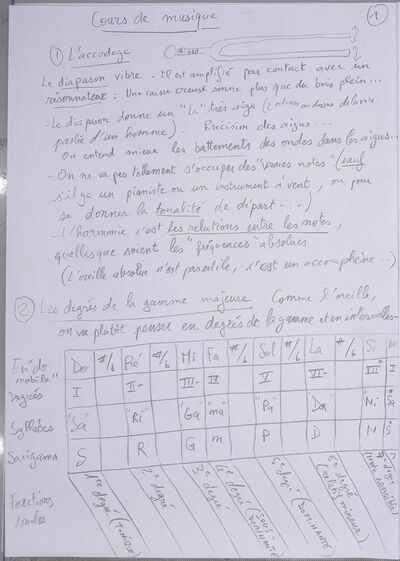 Cours de musique
1
1 L'accordage
Le diapason vibre - Il est amplifié par contact avec un
résonnateur : Une caisse creuse sonne plus que du bois plein...
- Le diapason donne un "La" très aigu (2 octaves au dessus de la voix
parlée d'un homme) : Précision des aigus...
On entend mieux les battements des ondes dans les aigus...
- On ne va pas tellement s'occuper des "vraies notes" (sauf
s'il y a un pianiste ou un instrument à vent, ou pour
se donner la tonalité de départ...)
- L'harmonie c'est les relations entre les notes,
quelles que soient les "fréquences" absolues
(L'oreille absolue n'est pas utile, c'est un acouphène...)
2 Les degrés de la gamme majeure Comme l'oreille,
on va plutôt penser en degrés de la gamme et en intervalles -
En "do mobile" Do #/b Ré #/b Mi Fa #/b Sol #/b La #/b Si Do
Degrés I II- III- IV V VI- VII° I
Syllabes "Sa" "Ri" "Ga" "ma" "Pa" "Da" "Ni" "Sa"
Sarigama S R G m P D N S
Fonctions tonales
1er degré (TONIQUE)
2e degré
3e degré
4e degré (SOUS-DOMINANTE)
5e degré (DOMINANTE)
6e degré (relatif mineur)
7e degré (note sensible)